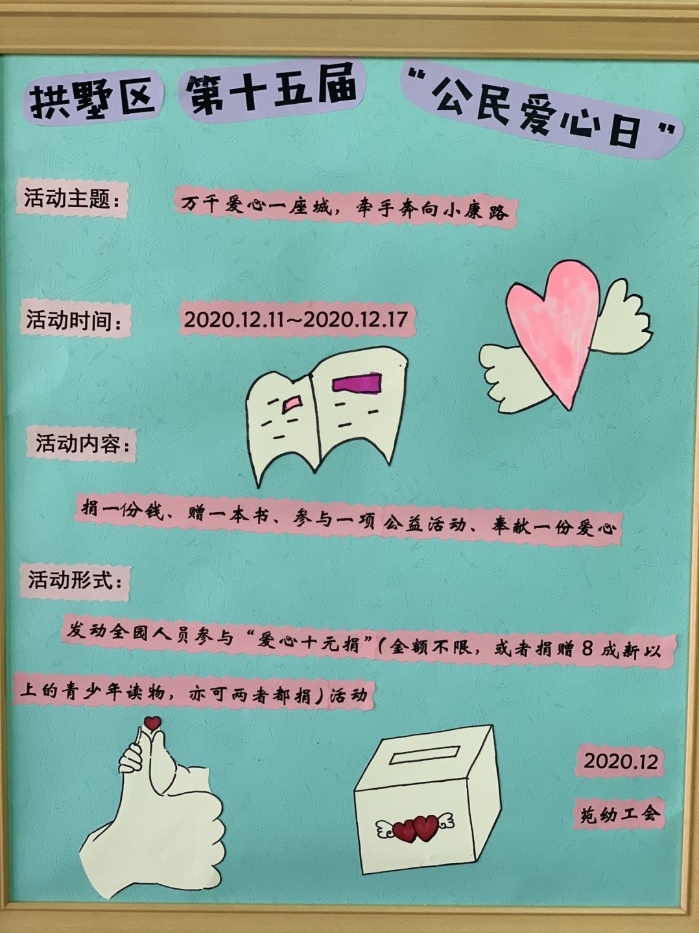 拱墅区 第十五届 “公民爱心日”
活动主题： 万千爱心一座城，牵手奔向小康路
活动时间： 2020.12.11~2020.12.17
活动内容：
捐一份钱、赠一本书、参与一项公益活动、奉献一份爱心
活动形式：
发动全园人员参与“爱心十元捐”（金额不限，或者捐赠8成新以
上的青少年读物，亦可两者都捐）活动
2020.12
苑幼工会